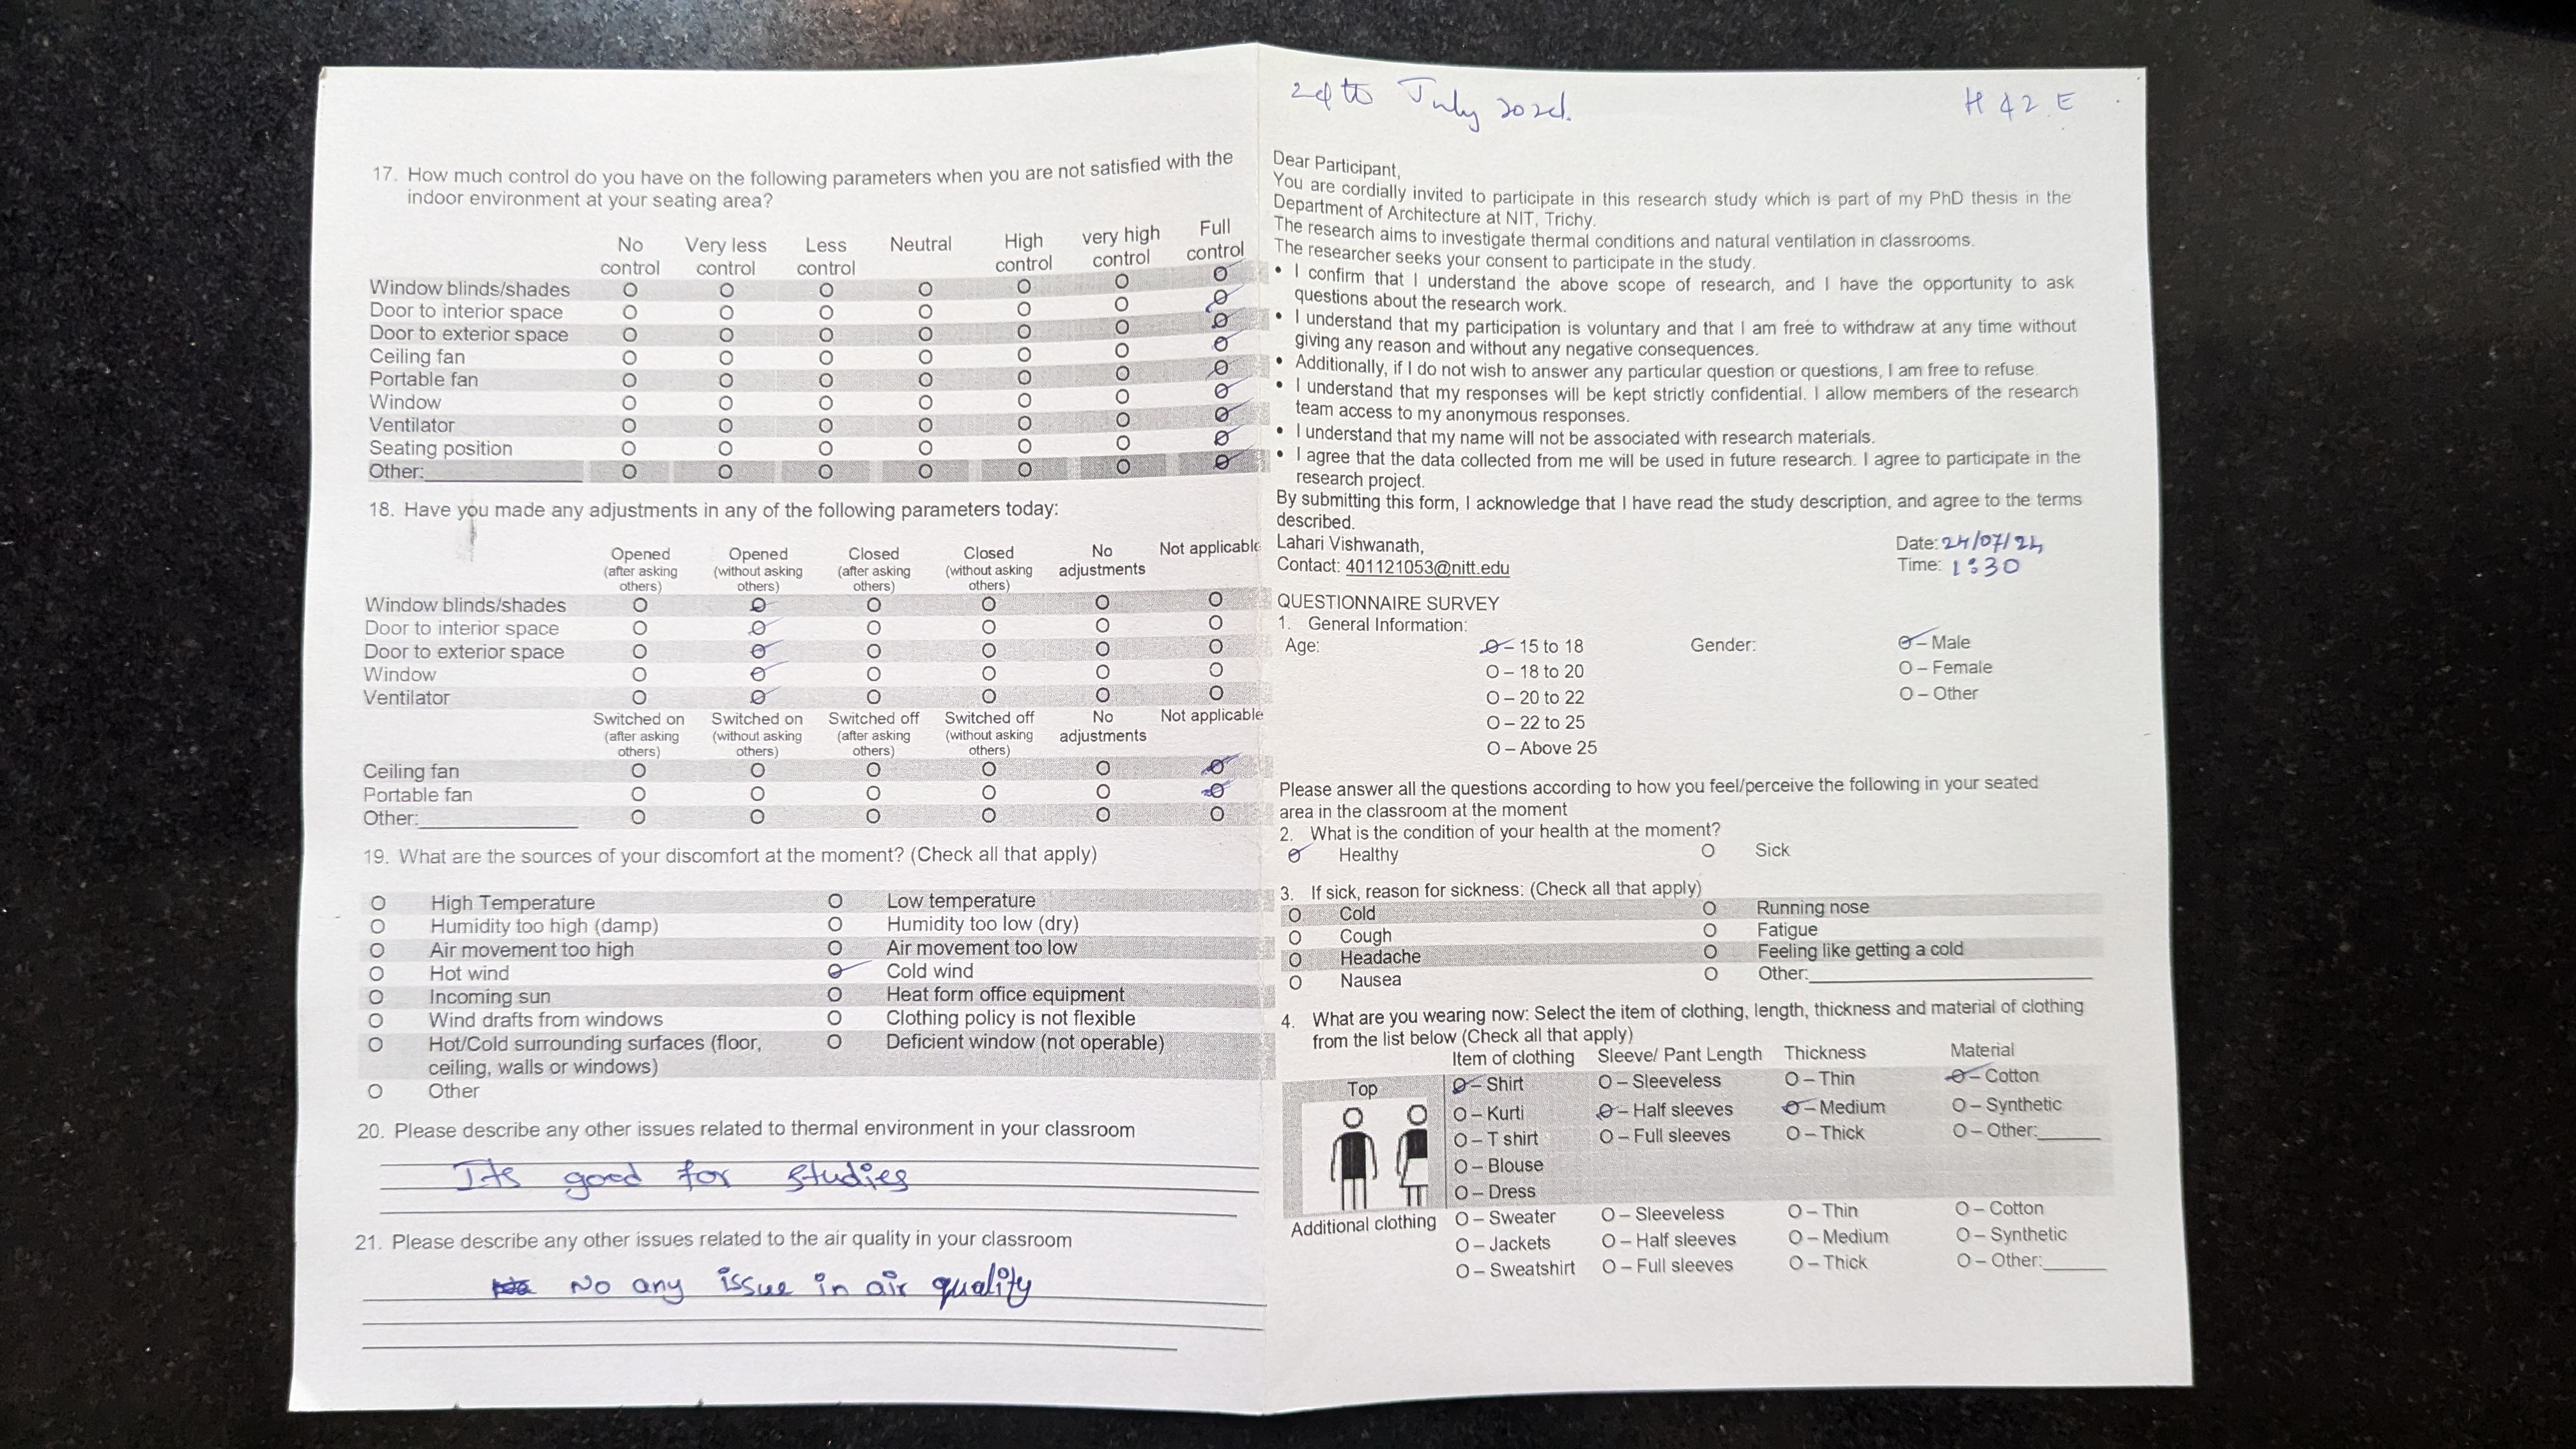 17. How much control do you have on the following parameters when you are not satisfied with the
indoor environment at your seating area?
No control Very less control Less control Neutral High control very high control Full control
Window blinds/shades O O O O O O O
Door to interior space O O O O O O O
Door to exterior space O O O O O O O
Ceiling fan O O O O O O O
Portable fan O O O O O O O
Window O O O O O O O
Ventilator O O O O O O O
Seating position O O O O O O O
Other: O O O O O O O
18. Have you made any adjustments in any of the following parameters today:
Opened (after asking others) Opened (without asking others) Closed (after asking others) Closed (without asking others) No adjustments Not applicable
Window blinds/shades O O O O O O
Door to interior space O O O O O O
Door to exterior space O O O O O O
Window O O O O O O
Ventilator O O O O O O
Switched on (after asking others) Switched on (without asking others) Switched off (after asking others) Switched off (without asking others) No adjustments Not applicable
Ceiling fan O O O O O O
Portable fan O O O O O O
Other: O O O O O O
19. What are the sources of your discomfort at the moment? (Check all that apply)
O High Temperature O Low temperature
O Humidity too high (damp) O Humidity too low (dry)
O Air movement too high O Air movement too low
O Hot wind O Cold wind
O Incoming sun O Heat form office equipment
O Wind drafts from windows O Clothing policy is not flexible
O Hot/Cold surrounding surfaces (floor, O Deficient window (not operable)
ceiling, walls or windows)
O Other
20. Please describe any other issues related to thermal environment in your classroom
Its good for studies
21. Please describe any other issues related to the air quality in your classroom
No any issue in air quality
24th July 2024. H 42 E
Dear Participant,
You are cordially invited to participate in this research study which is part of my PhD thesis in the
Department of Architecture at NIT, Trichy.
The research aims to investigate thermal conditions and natural ventilation in classrooms.
The researcher seeks your consent to participate in the study.
• I confirm that I understand the above scope of research, and I have the opportunity to ask
questions about the research work.
• I understand that my participation is voluntary and that I am free to withdraw at any time without
giving any reason and without any negative consequences.
• Additionally, if I do not wish to answer any particular question or questions, I am free to refuse.
• I understand that my responses will be kept strictly confidential. I allow members of the research
team access to my anonymous responses.
• I understand that my name will not be associated with research materials.
• I agree that the data collected from me will be used in future research. I agree to participate in the
research project.
By submitting this form, I acknowledge that I have read the study description, and agree to the terms
described.
Lahari Vishwanath, Date: 24/07/24
Contact: 401121053@nitt.edu Time: 1:30
QUESTIONNAIRE SURVEY
1. General Information:
Age: O – 15 to 18 Gender: O – Male
O – 18 to 20 O – Female
O – 20 to 22 O – Other
O – 22 to 25
O – Above 25
Please answer all the questions according to how you feel/perceive the following in your seated
area in the classroom at the moment
2. What is the condition of your health at the moment?
O Healthy O Sick
3. If sick, reason for sickness: (Check all that apply)
O Cold O Running nose
O Cough O Fatigue
O Headache O Feeling like getting a cold
O Nausea O Other:
4. What are you wearing now: Select the item of clothing, length, thickness and material of clothing
from the list below (Check all that apply)
Item of clothing Sleeve/ Pant Length Thickness Material
Top O – Shirt O – Sleeveless O – Thin O – Cotton
O – Kurti O – Half sleeves O – Medium O – Synthetic
O – T shirt O – Full sleeves O – Thick O – Other:
O – Blouse
O – Dress
Additional clothing O – Sweater O – Sleeveless O – Thin O – Cotton
O – Jackets O – Half sleeves O – Medium O – Synthetic
O – Sweatshirt O – Full sleeves O – Thick O – Other: